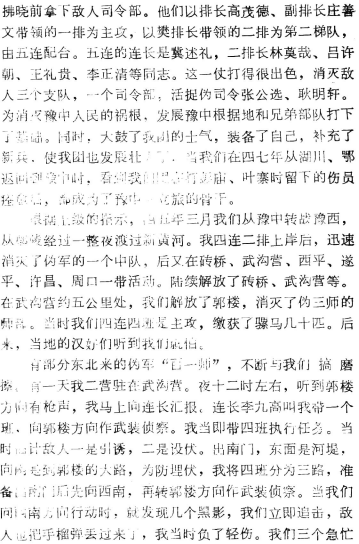 拂晓前拿下敌人司令部。他们以排长高茂德、副排长庄善
文带领的一排为主攻，以樊排长带领的二排为第二梯队，
由五连配合。五连的连长是冀述礼，二排长林莫哉、吕许
朝、王礼贵、李正清等同志。这一仗打得很出色，消灭敌
人三个支队，一个司令部，活捉伪司令张公选、耿明轩。
为消灭豫中人民的祸根，发展豫中根据地和兄弟部队打下
了基础。同时，大鼓了我团的士气，装备了自己，补充了
新兵，使我团也发展壮 当我们在四七年从湖川、鄂
返回到豫中时，看到我们 庙、叶寨时留下的伤员
都成为了豫中 旅的骨干。
根据上级的指示， 五年三月我们从豫中转战豫西，
从 经过一整夜渡过新黄河。我四连二排上岸后，迅速
消灭了伪军的一个中队，后又在砖桥、武沟营、西平、遂
平、许昌、周口一带活动。陆续解放了砖桥、武沟营等。
在武沟营约五公里处，我们解放了郭楼，消灭了伪三师的
师部。当时我们四连四班是主攻，缴获了骡马几十匹。后
来，当地的汉奸们听到我们就怕。
有部分东北来的伪军“百一师”，不断与我们搞磨
擦。有一天我二营驻在武沟营。夜十二时左右，听到郭楼
方向有枪声，我马上向连长汇报，连长李九高叫我带一个
班、向郭楼方向作武装侦察。我当即带四班执行任务。当
时估计敌人一是引诱，二是设伏。出南门，东面是河堤，
向南是到郭楼的大路，为防埋伏，我将四班分为三路，准
备出南门后先向西南，再转郭楼方向作武装侦察。当我们
向西南方向行动时，就发现几个黑影，我们立即追击，敌
人也把手榴弹丢过来了，我当时负了轻伤。我们三个急忙